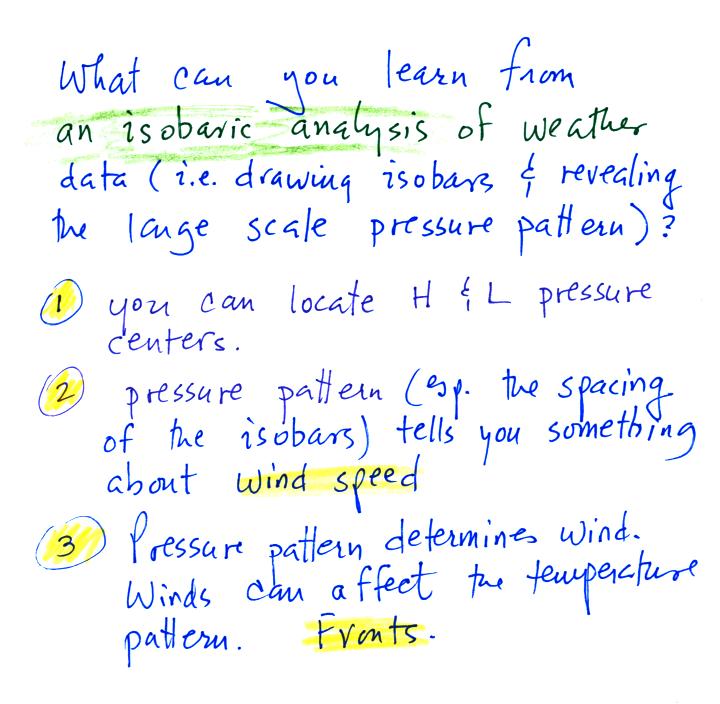 What can you learn from
an isobaric analysis of weather
data (i.e. drawing isobars & revealing
the large scale pressure pattern)?
1 you can locate H & L pressure
centers.
2 pressure pattern (esp. the spacing
of the isobars) tells you something
about wind speed
3 Pressure pattern determines wind.
Winds can affect the temperature
pattern. Fronts.